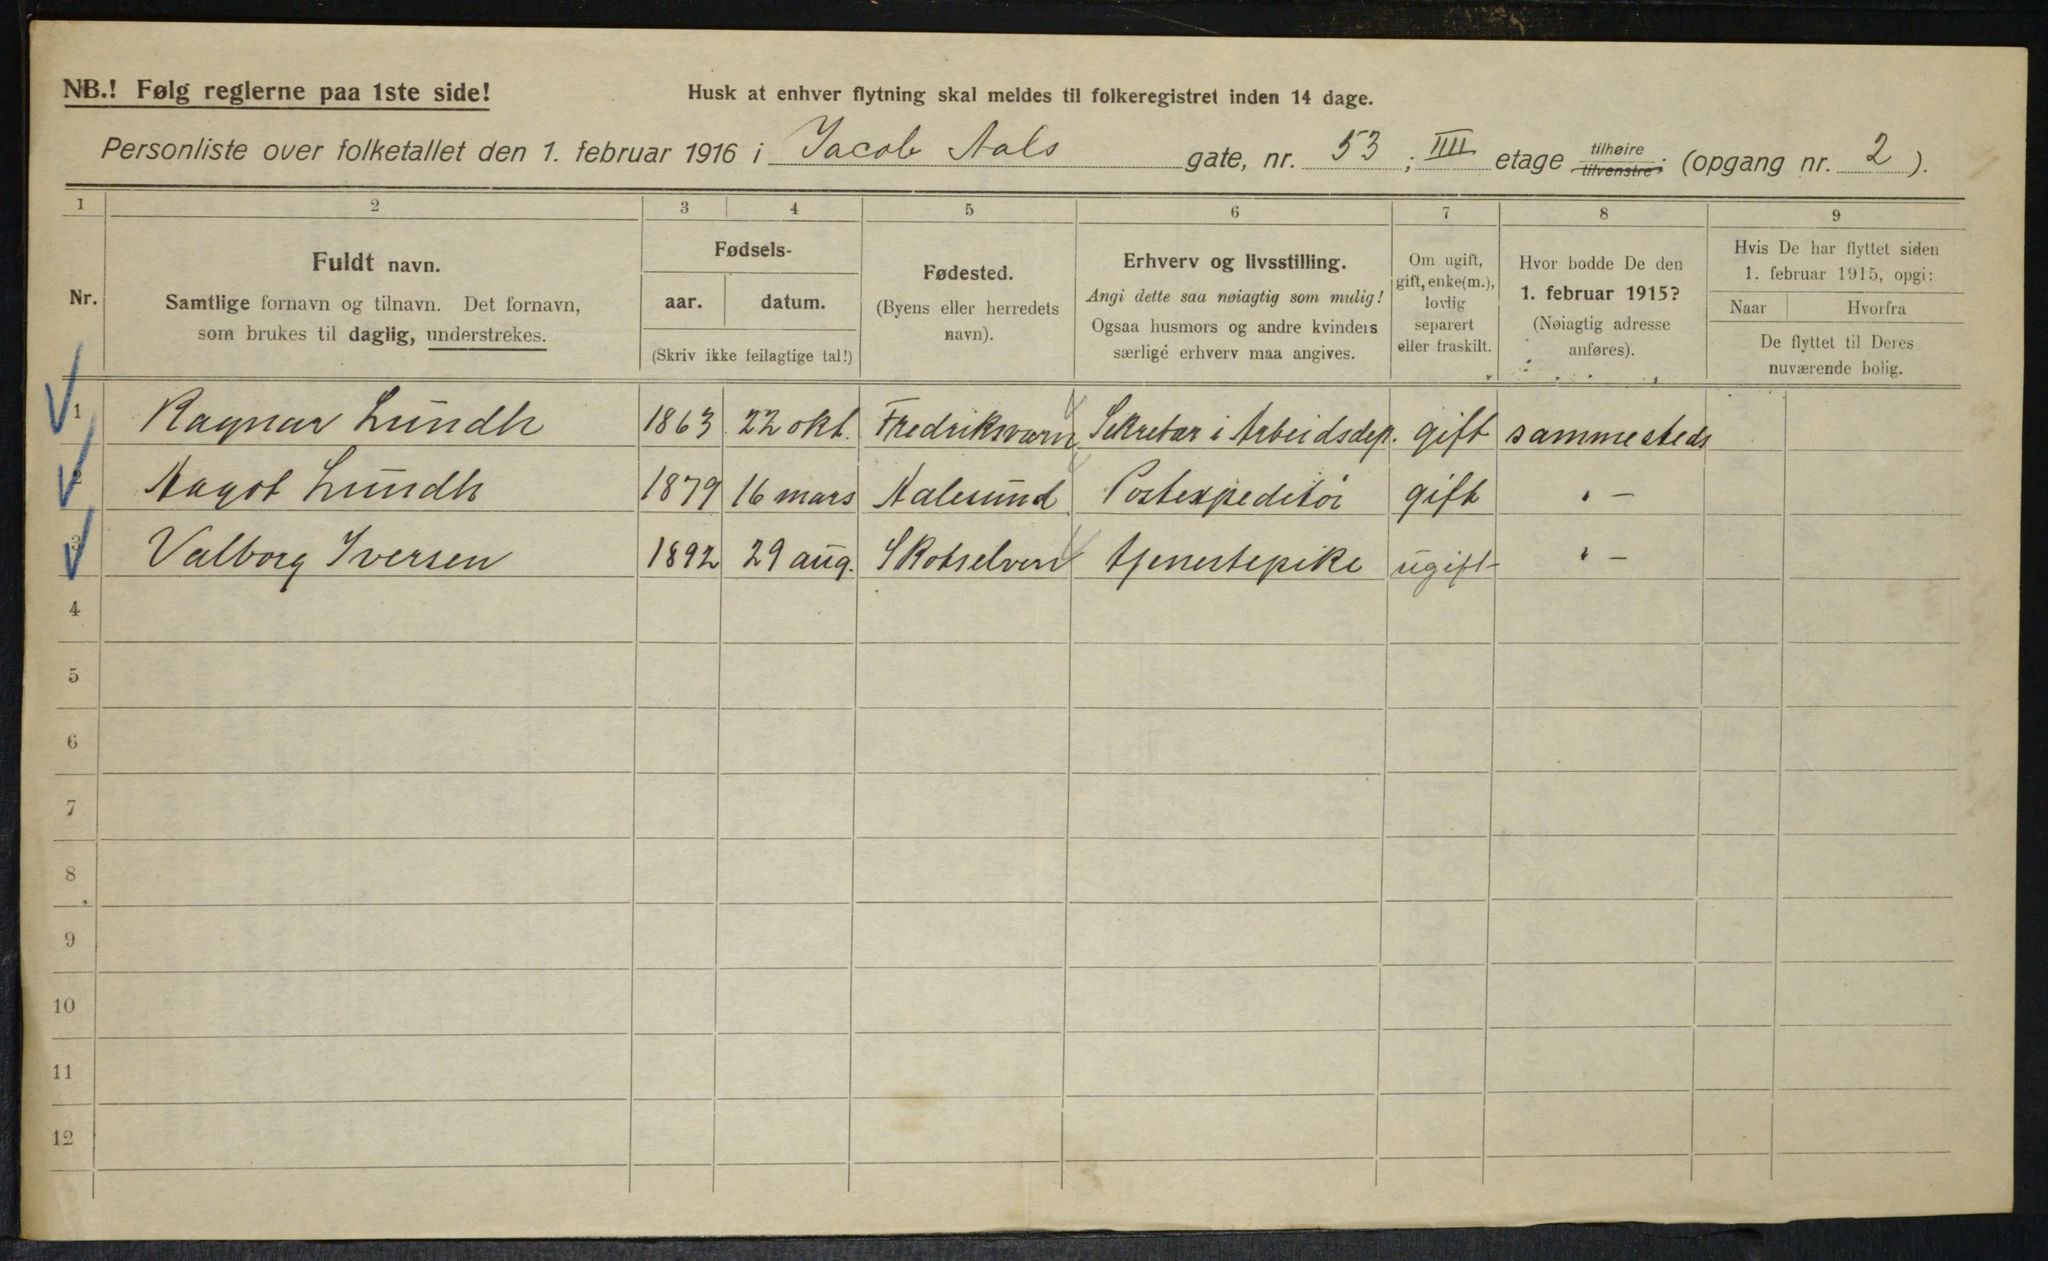 NB.! Følg reglerne paa 1ste side!
Husk at enhver flytning skal meldes til folkeregistret inden 14 dage.
Personliste over folketallet den 1. februar 1916 i Jacob Aals gate, nr. 53 ; IIII etage tilhøire tilvenstre; (opgang nr. 2 ).
1 2 3 4 5 6 7 8 9
Nr.
Fuldt navn.
Samtlige fornavn og tilnavn. Det fornavn,
som brukes til daglig, understrekes.
Fødsels-
aar. datum.
(Skriv ikke feilagtige tal!)
Fødested.
(Byens eller herredets
navn).
Erhverv og livsstilling.
Angi dette saa nøiagtig som mulig!
Ogsaa husmors og andre kvinders
særlige erhverv maa angives.
Om ugift,
gift, enke(m.),
lovlig
separert
eller fraskilt.
Hvor bodde De den
1. februar 1915?
(Nøiagtig adresse
anføres).
Hvis De har flyttet siden
1. februar 1915, opgi:
Naar Hvorfra
De flyttet til Deres
nuværende bolig.
1 Ragnar Lundh 1863 22 okt. Fredriksværn Sekretær i Arbeidsdep. gift sammesteds
2 Aagot Lundh 1879 16 mars Aalesund Postexpeditør gift " –
3 Valborg Iversen 1892 29 aug. Skotselven tjenestepike ugift " –
4
5
6
7
8
9
10
11
12